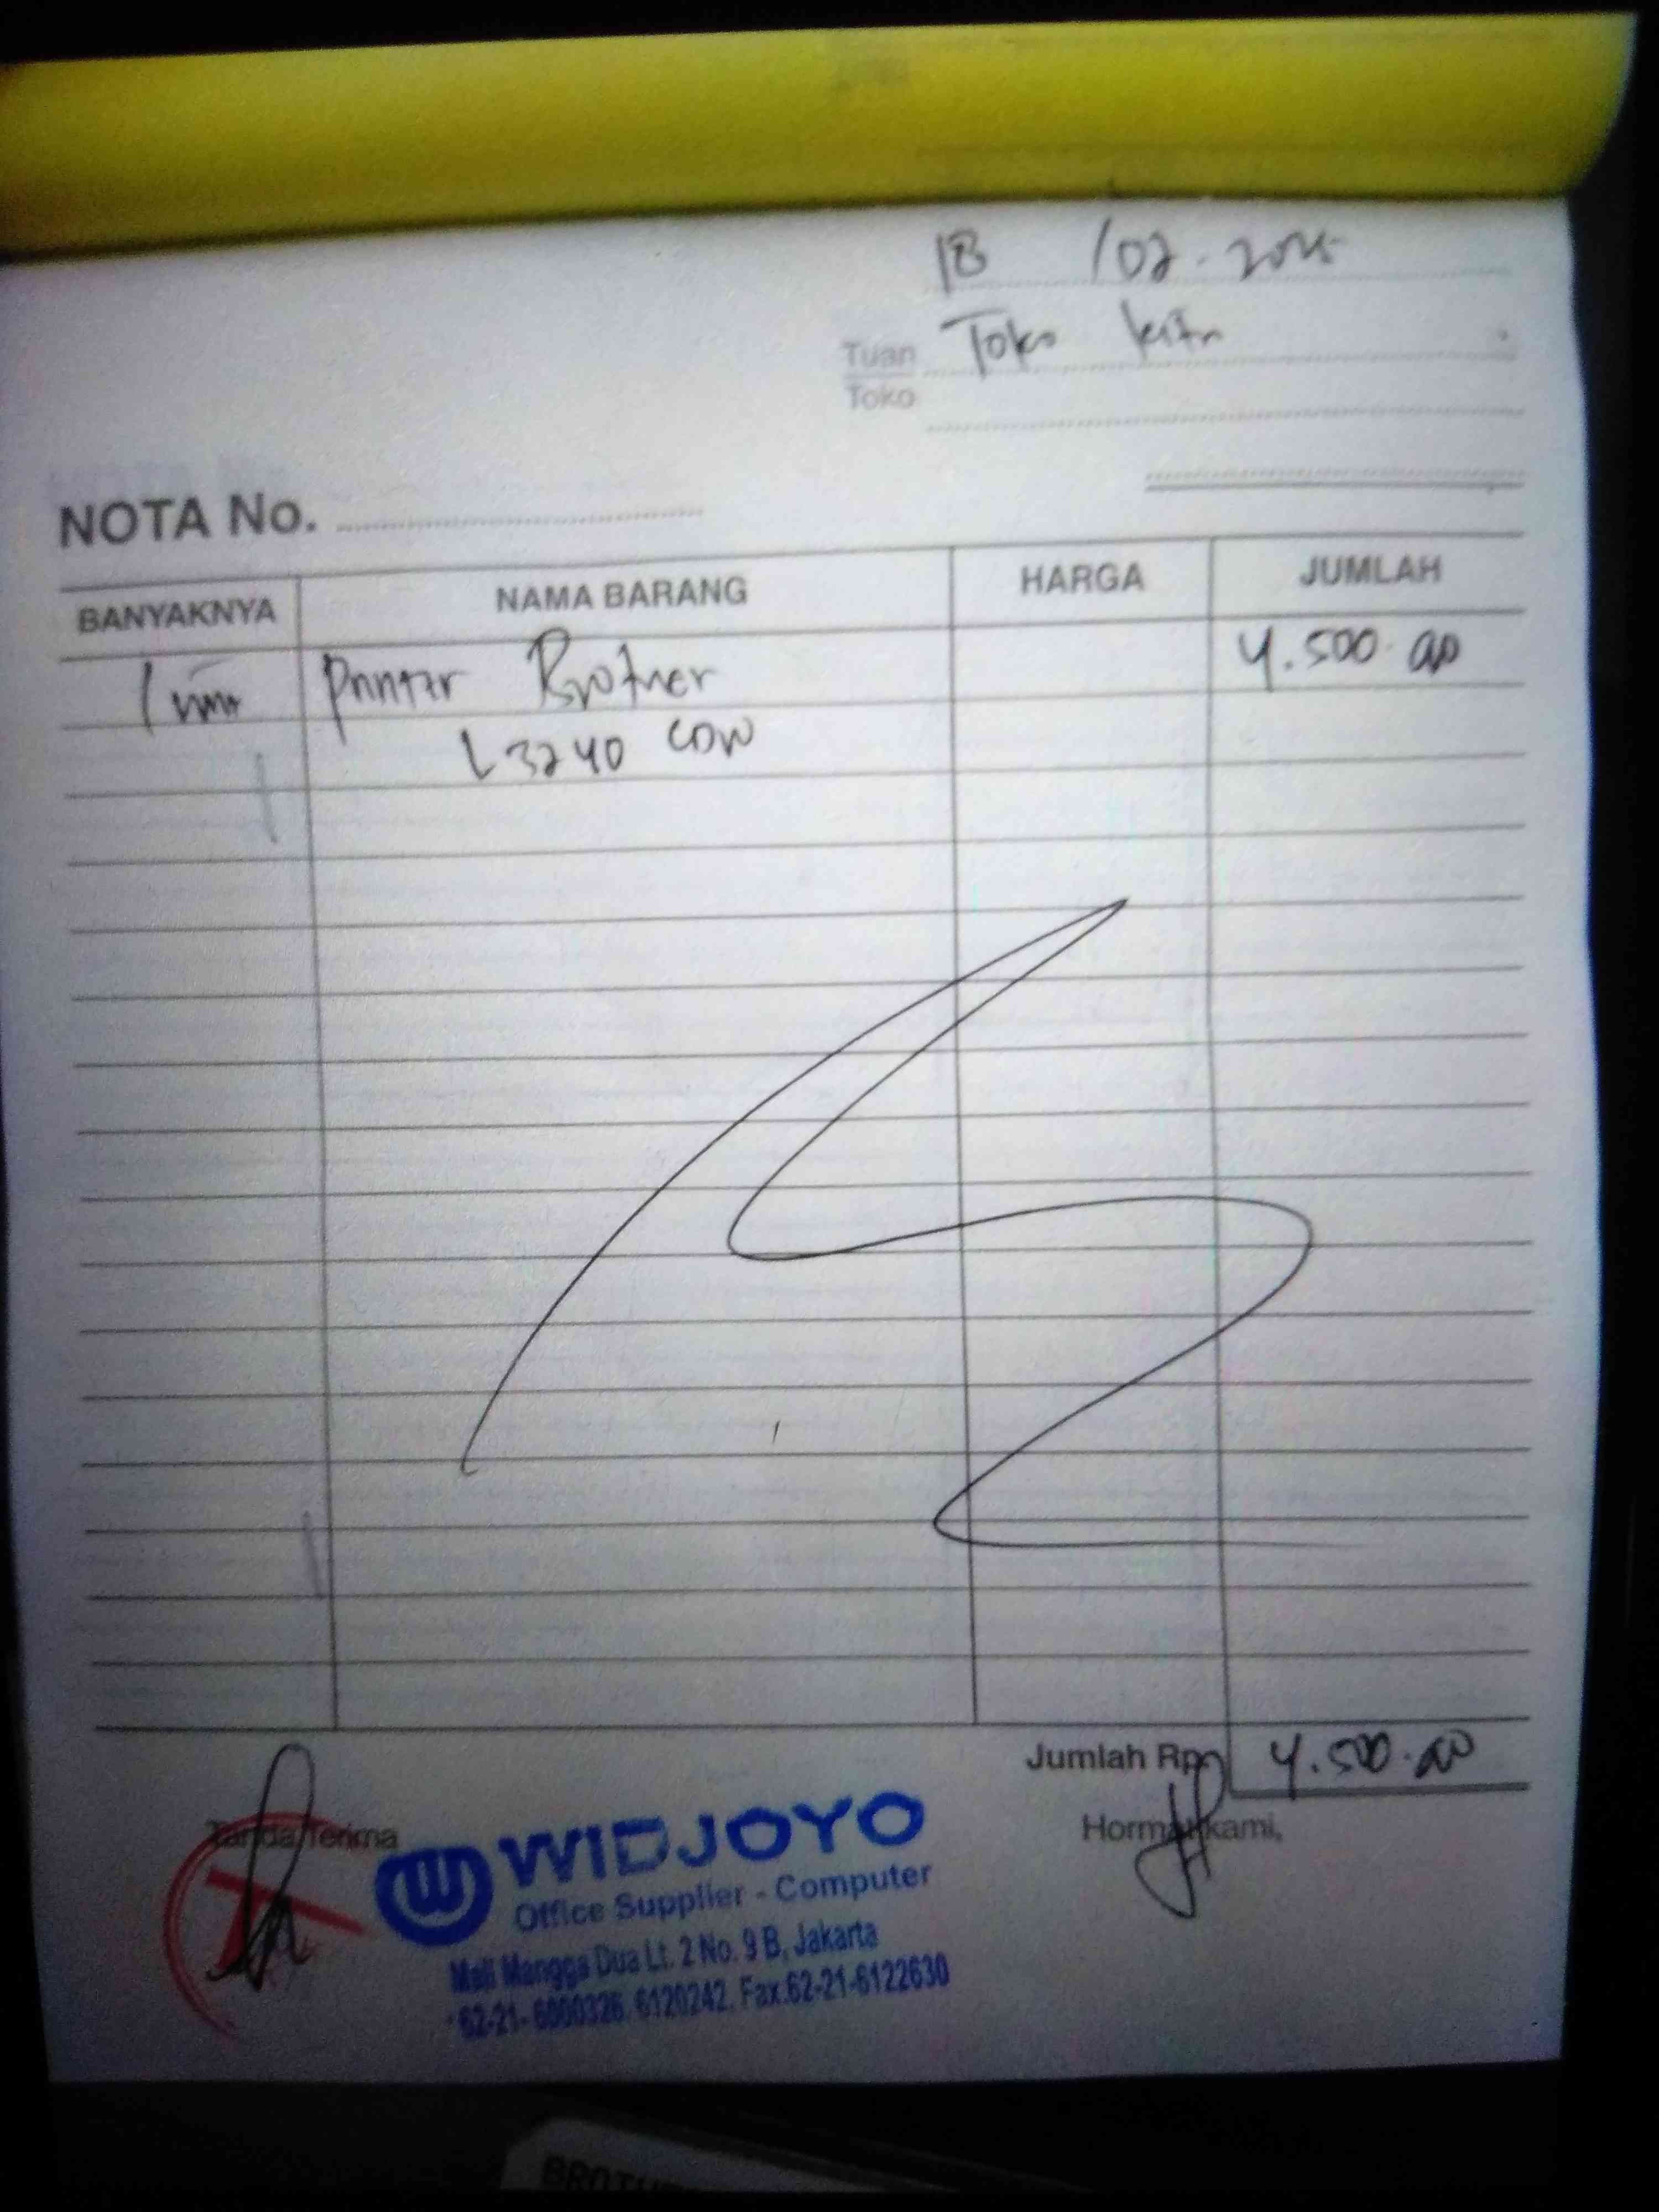 18 /02.2025
Tuan Toko kita
Toko
NOTA No.
BANYAKNYA NAMA BARANG HARGA JUMLAH
1 unit Printer Brother 4.500.000
L3240 CDW
Jumlah Rp. 4.500.000
Tanda Terima Hormat kami,
WIDJOYO
Office Supplier - Computer
Mall Mangga Dua Lt. 2 No. 9 B, Jakarta
62-21- 6000326, 6120242. Fax.62-21-6122630